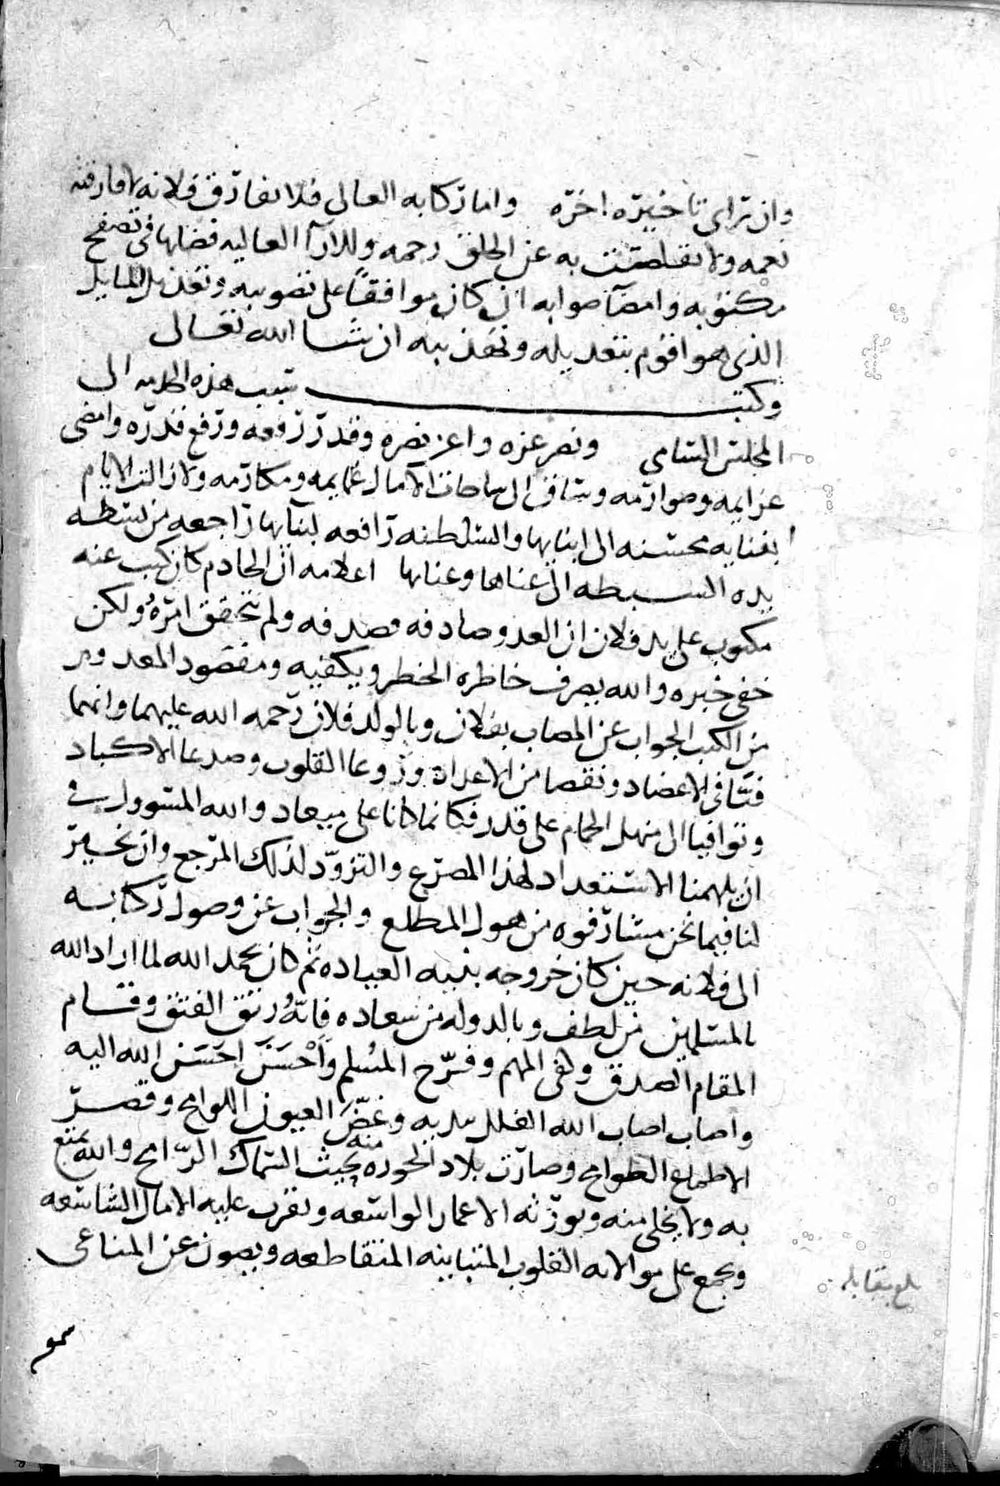 وان تراى تاخيره اخره واما ركابه العالى فلا تفارق فلانه لا فارقته
نعمه ولا تقلصت به عن الخلق رحمه وللارآ العاليه فضلها فى تصفح
مكتوبه وامضآ صوابه ان كان موافقاً على تصويبه وتعديل المايل
الذى هو اقوم بتعديله وتهذيبه ان شا الله تعالى
وكتب بسبب هذه الخدمه الى
المجلس السامى ونصر عزه واعز نصره وقدر رفعه ورفع قدره وامضى
عزايمه وصوارمه وساق الى ساحات الآمال غمايمه ومكارمه ولا زالت الايام
بفنايه محسنه الى ابنايها والسلطنه رافعه لبنآيها راجعه من بسطه
يده البسيطه الى غناها وعنايها اعلامه ان الخادم كان كتب عنه
مكتوب على يد فلان ان العدو صادفه فصدفه ولم يتحقق امره ولكن
خفى خبره والله يصرف خاطره الخطر ويكفيه ومقصود المعدوم
من الكتب الجواب عن المصاب بفلان وبالولد فلان رحمه الله عليهما وانهما
فتتا فى الاعضاد ونقصا من الاعداد وروعا القلوب وصدعا الاكباد
وتوافيا الى منهل الحمام على قدر فكانما كانا على ميعاد والله المسوول فى
ان يلهمنا الاستعداد لهذا المصرع والتزود لذلك المرجع وان يخير
لنا فيما نحن مشارفوه من هول المطلع والجواب عن وصول ركابه
الى فلانه حين كان خروجه بنيه العباده ثم كان بحمد الله لما اراد الله
بالمسلمين من لطف وبالدوله من سعاده فانه رتق الفتق وقام
المقام الصدق ولقى المهم وفرح المسلم واحسن احسن الله اليه
واصاب اصاب الله الغلل بيديه وغض العيون اللوامح وقصر
الاطماع الطوامح وصارت بلاد الحوزه منه بحيث السماك الرامح والله يمتع
به ولا يخلى منه ويورثه الاعمار الواسعه ويقرب عليه الامال الشاسعه
ويجمع على موالاته القلوب المتباينه المتقاطعه ويصون عن المناعى
بلغ مقابله
سمو